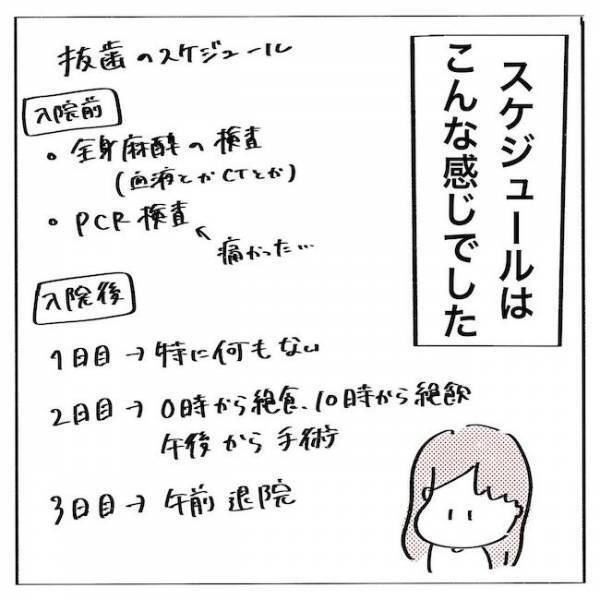 スケジュールは
こんな感じでした
抜歯のスケジュール
入院前
• 全身麻酔の検査
(血液とかCTとか)
• PCR検査
↖痛かった…
入院後
1日目→特に何もない
2日目→0時から絶食、10時から絶飲
午後から手術
3日目→午前退院